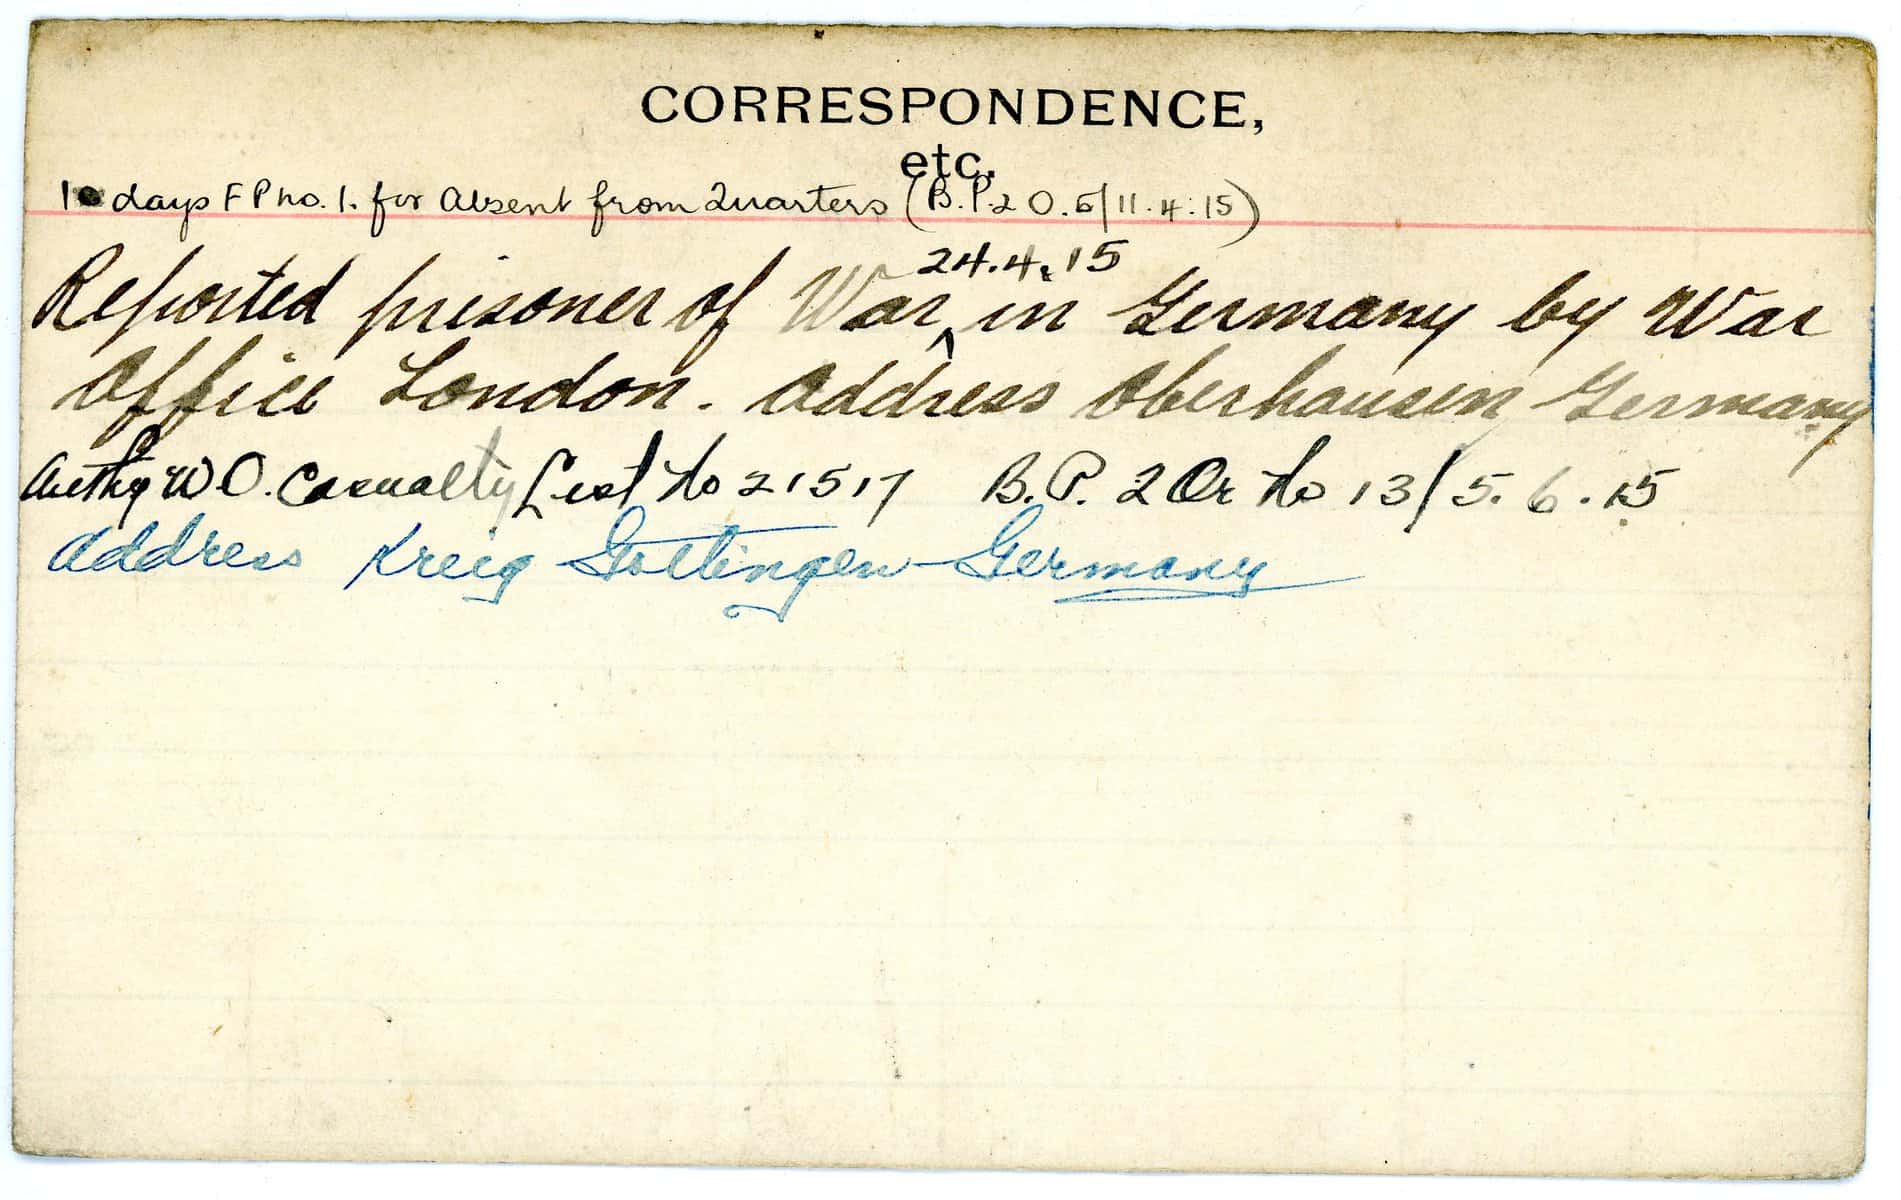 CORRESPONDENCE,
etc.
10 days F P no. 1. for Absent from Quarters (B.P.2 O.6/11.4.15)
24.4.15
Reported prisoner of War ^ in Germany by War
Office London. Address Oberhausen Germany
Authy W.O. Casualty List No 21517 B.P. 2 Or No 13/5.6.15
Address Kreig Gottingen Germany